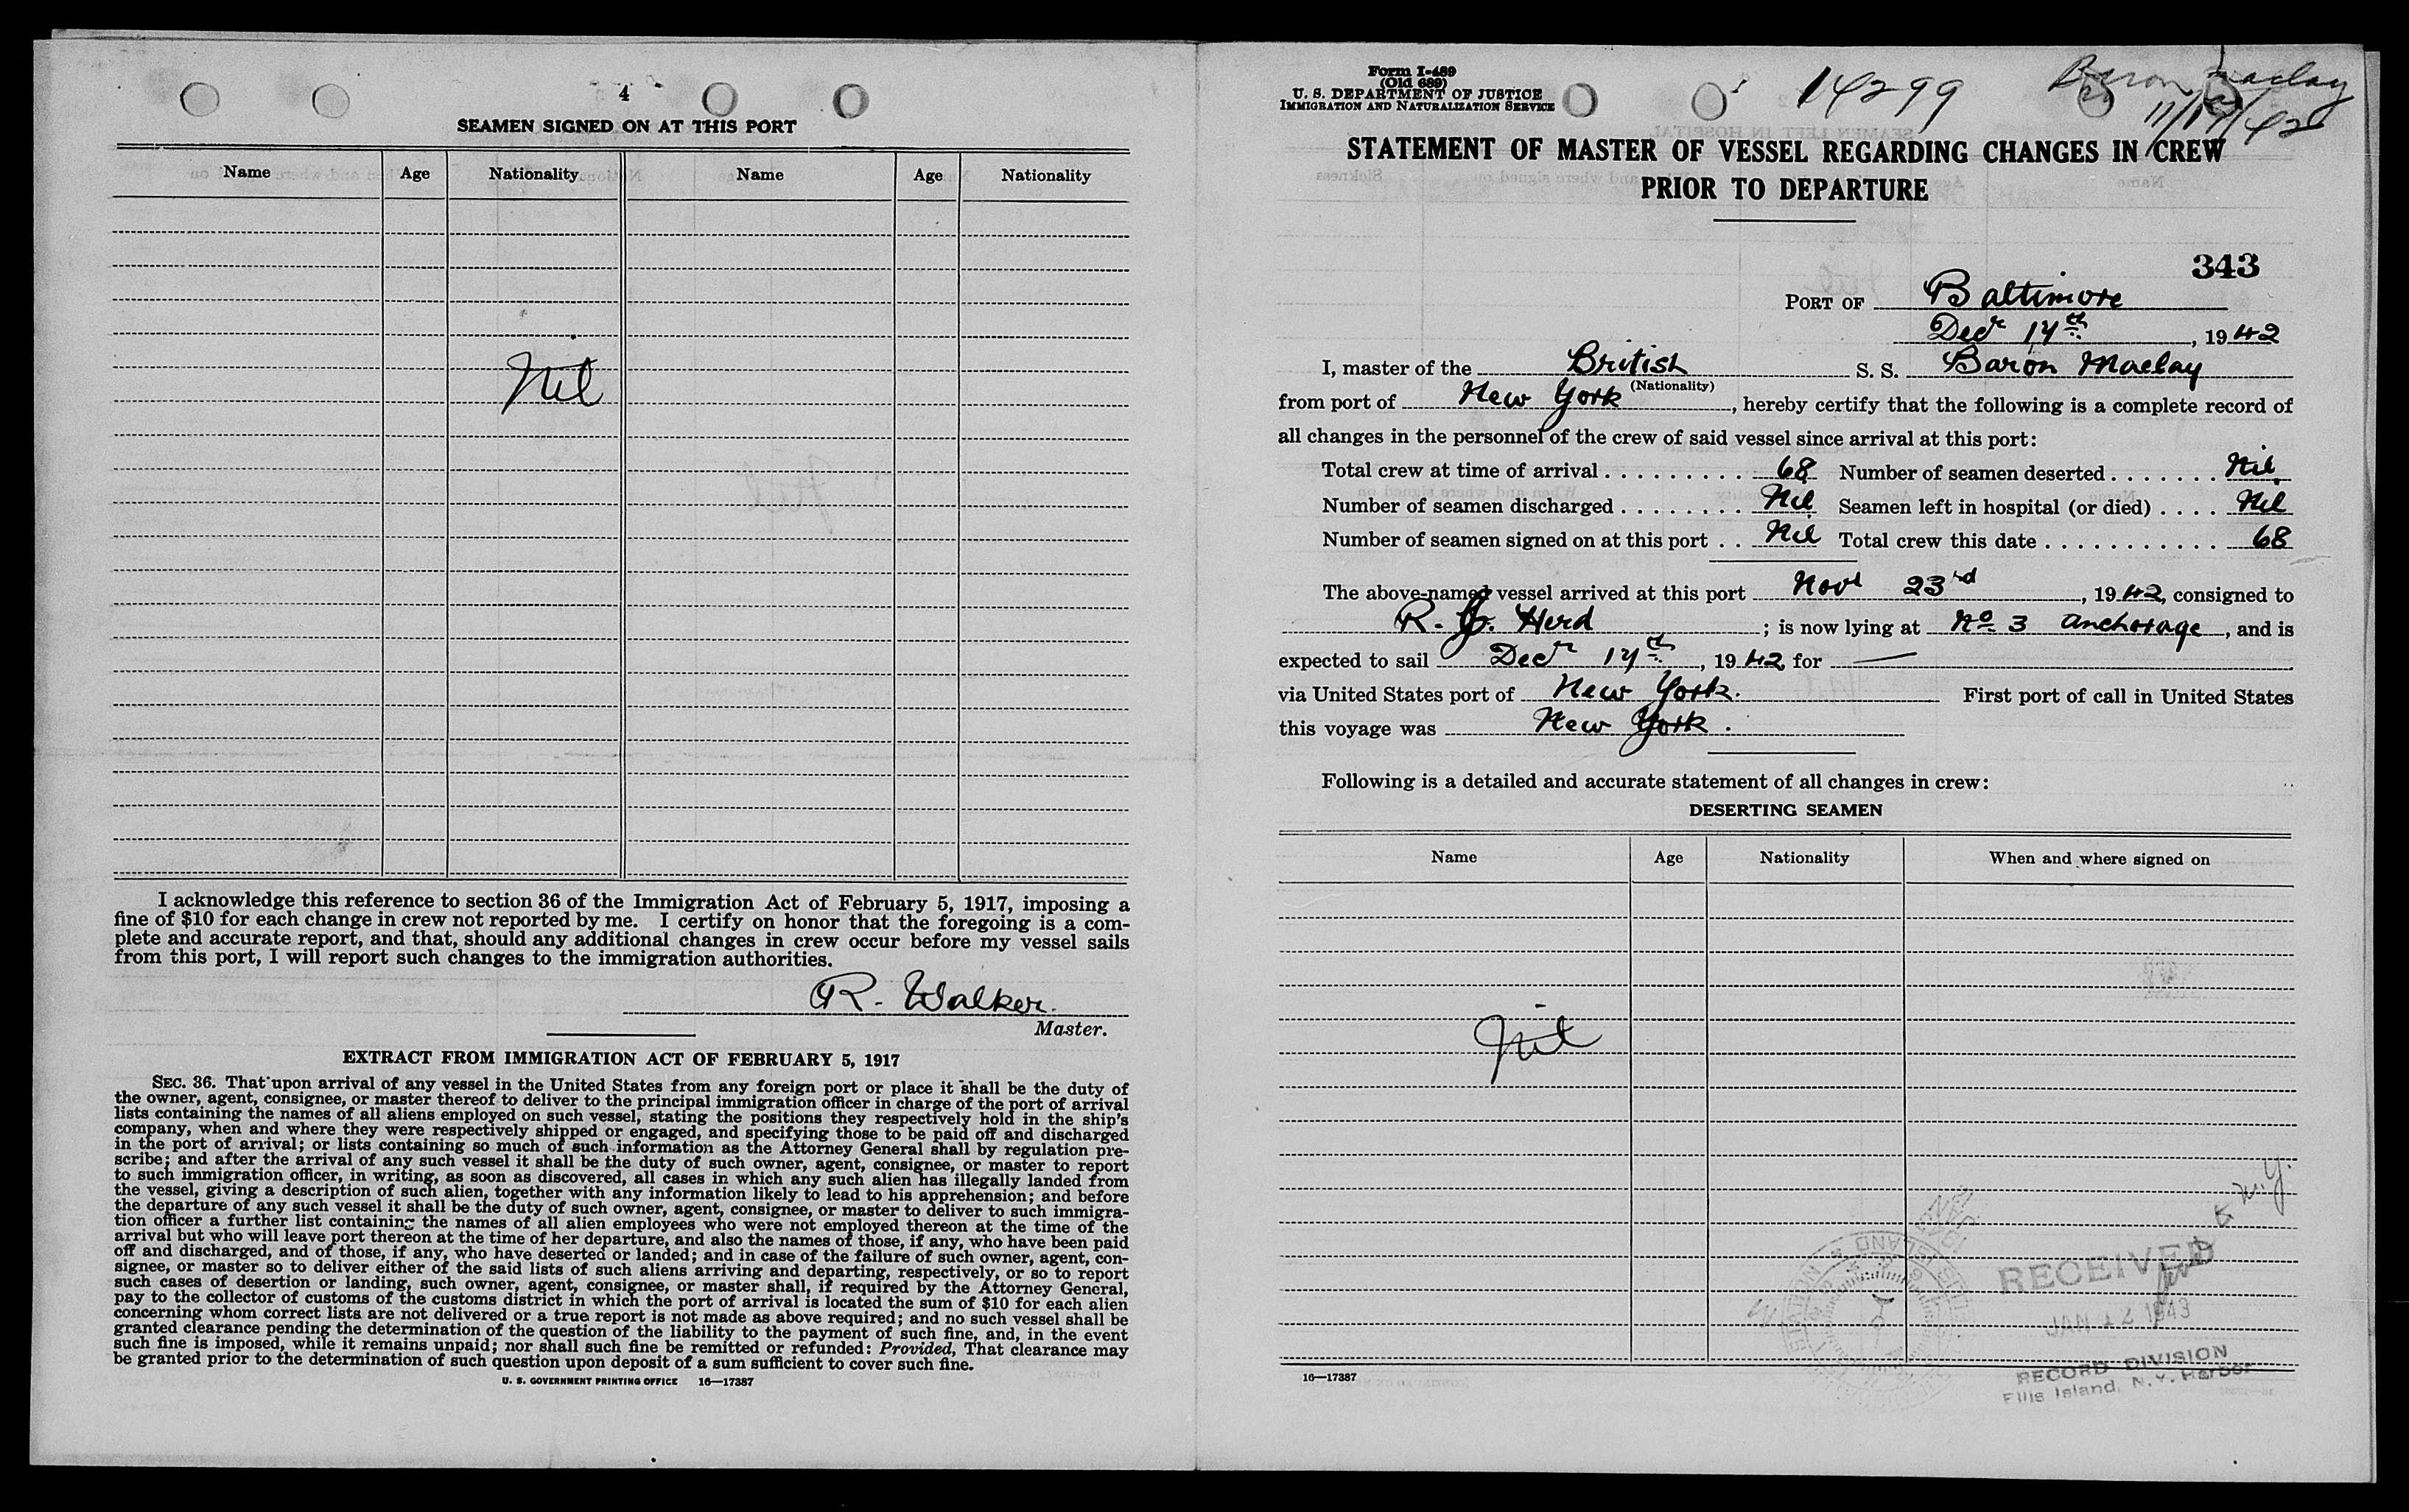 4
SEAMEN SIGNED ON AT THIS PORT
Name Age Nationality Name Age Nationality
Nil
I acknowledge this reference to section 36 of the Immigration Act of February 5, 1917, imposing a
fine of $10 for each change in crew not reported by me. I certify on honor that the foregoing is a com-
plete and accurate report, and that, should any additional changes in crew occur before my vessel sails
from this port, I will report such changes to the immigration authorities.
R. Walker.
Master.
EXTRACT FROM IMMIGRATION ACT OF FEBRUARY 5, 1917
SEC. 36. That upon arrival of any vessel in the United States from any foreign port or place it shall be the duty of
the owner, agent, consignee, or master thereof to deliver to the principal immigration officer in charge of the port of arrival
lists containing the names of all aliens employed on such vessel, stating the positions they respectively hold in the ship's
company, when and where they were respectively shipped or engaged, and specifying those to be paid off and discharged
in the port of arrival; or lists containing so much of such information as the Attorney General shall by regulation pre-
scribe; and after the arrival of any such vessel it shall be the duty of such owner, agent, consignee, or master to report
to such immigration officer, in writing, as soon as discovered, all cases in which any such alien has illegally landed from
the vessel, giving a description of such alien, together with any information likely to lead to his apprehension; and before
the departure of any such vessel it shall be the duty of such owner, agent, consignee, or master to deliver to such immigra-
tion officer a further list containing the names of all alien employees who were not employed thereon at the time of the
arrival but who will leave port thereon at the time of her departure, and also the names of those, if any, who have been paid
off and discharged, and of those, if any, who have deserted or landed; and in case of the failure of such owner, agent, con-
signee, or master so to deliver either of the said lists of such aliens arriving and departing, respectively, or so to report
such cases of desertion or landing, such owner, agent, consignee, or master shall, if required by the Attorney General,
pay to the collector of customs of the customs district in which the port of arrival is located the sum of $10 for each alien
concerning whom correct lists are not delivered or a true report is not made as above required; and no such vessel shall be
granted clearance pending the determination of the question of the liability to the payment of such fine, and, in the event
such fine is imposed, while it remains unpaid; nor shall such fine be remitted or refunded: Provided, That clearance may
be granted prior to the determination of such question upon deposit of a sum sufficient to cover such fine.
U. S. GOVERNMENT PRINTING OFFICE 16—17387
Form I-489
(Old 689)
U. S. DEPARTMENT OF JUSTICE
IMMIGRATION AND NATURALIZATION SERVICE
14299
Baron Maclay
11/17/42
STATEMENT OF MASTER OF VESSEL REGARDING CHANGES IN CREW
PRIOR TO DEPARTURE
343
PORT OF Baltimore
Decr 14th, 1942
I, master of the British S. S. Baron Maclay
(Nationality)
from port of New York, hereby certify that the following is a complete record of
all changes in the personnel of the crew of said vessel since arrival at this port:
Total crew at time of arrival . . . . . . . . . 68 Number of seamen deserted . . . . . . . Nil.
Number of seamen discharged . . . . . . . . Nil Seamen left in hospital (or died) . . . . Nil
Number of seamen signed on at this port . . Nil Total crew this date . . . . . . . . . . . . 68
The above-named vessel arrived at this port Novr 23rd, 1942, consigned to
R. G. Herd; is now lying at No. 3 Anchorage, and is
expected to sail Decr 14th, 1942 for —
via United States port of New York. First port of call in United States
this voyage was New York.
Following is a detailed and accurate statement of all changes in crew:
DESERTING SEAMEN
Name Age Nationality When and where signed on
Nil
N.Y.
RECEIVED
JAN 12 1943
RECORD DIVISION
Ellis Island, N. Y. Harbor
16—17387